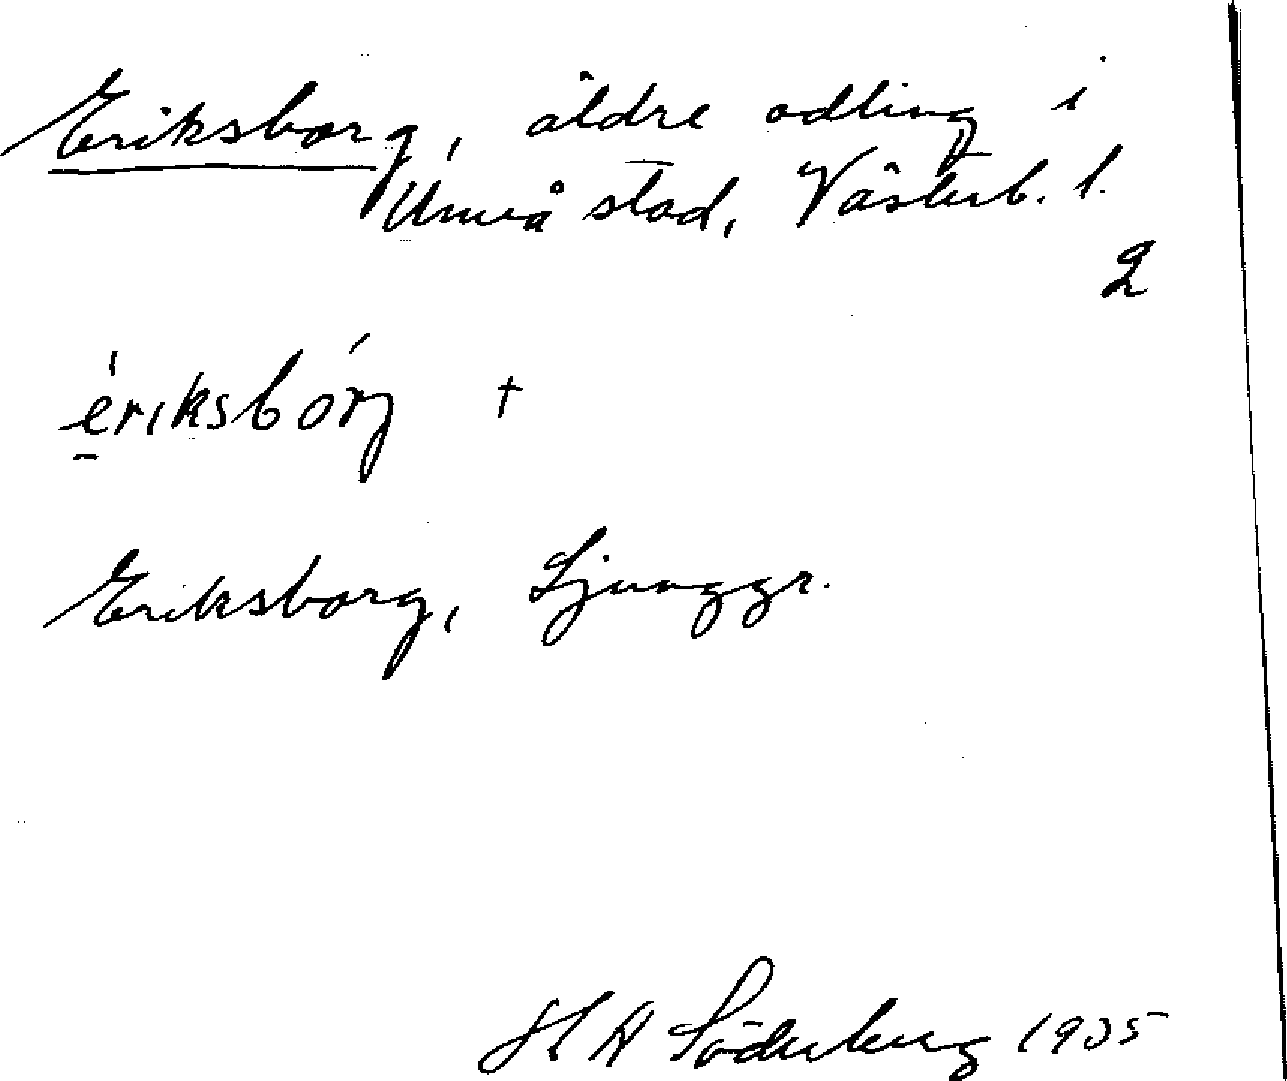 Eriksborg, äldre odling i
Umeå stad, Västerb. l.
2
ériksbórj †
Eriksborg, Ljunggr.
H A Söderberg 1935